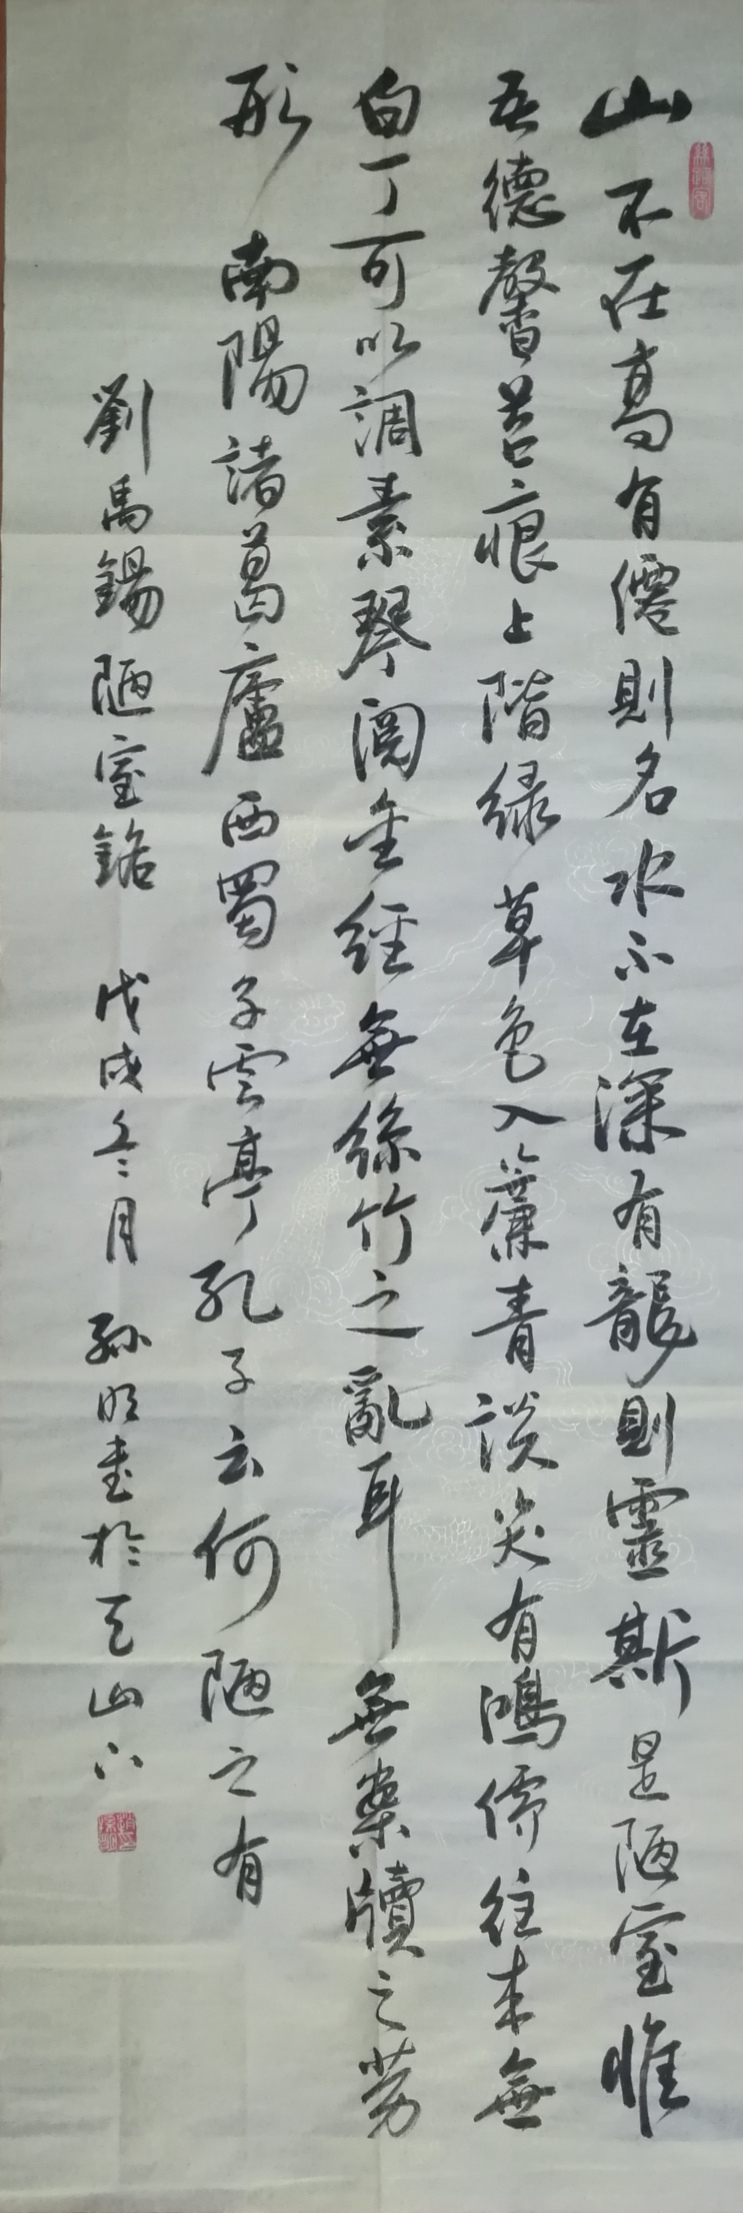 山不在高有僊則名水不在深有龍則靈斯是陋室惟
吾德馨苔痕上階緑草色入簾青談笑有鴻儒往来無
白丁可以調素琴閲金經無絲竹之亂耳無案牘之勞
形南陽諸葛廬西蜀子雲亭孔子云何陋之有
劉禹錫陋室銘 戊戌冬月 孫明書於天山下